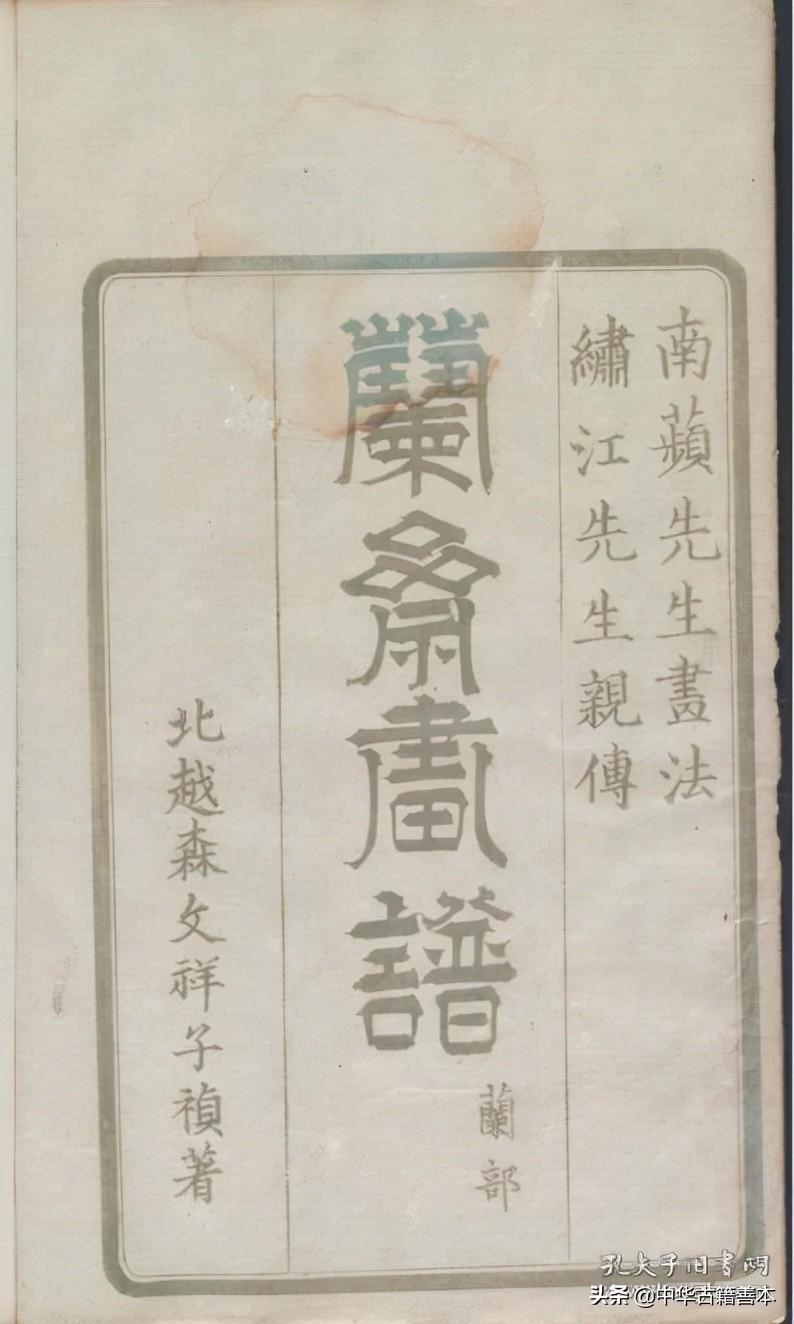 南蘋先生畫法
繡江先生親傳
蘭齋畫譜
蘭部
北越森文祥子禎著
孔夫子旧书网
头条 @中华古籍善本